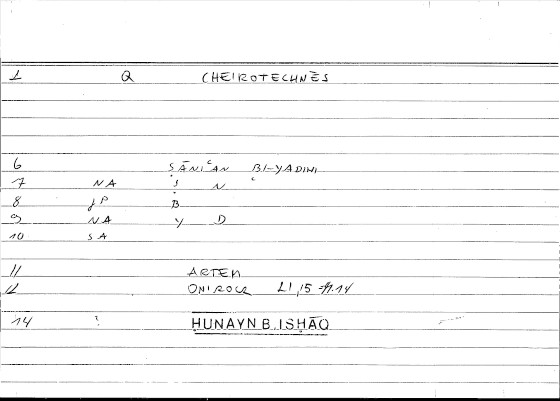 1 Q CHEIROTECHNĒS
6 ṢĀNIʿAN BI-YADIHI
7 NA Ṣ N ʿ
8 JP B
9 NA Y D
10 SA
11 ARTEM
12 ONIROCR 21,15
14 ? ḤUNAYN B. ISḤĀQ